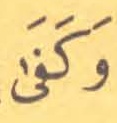 وَكَفَىٰ